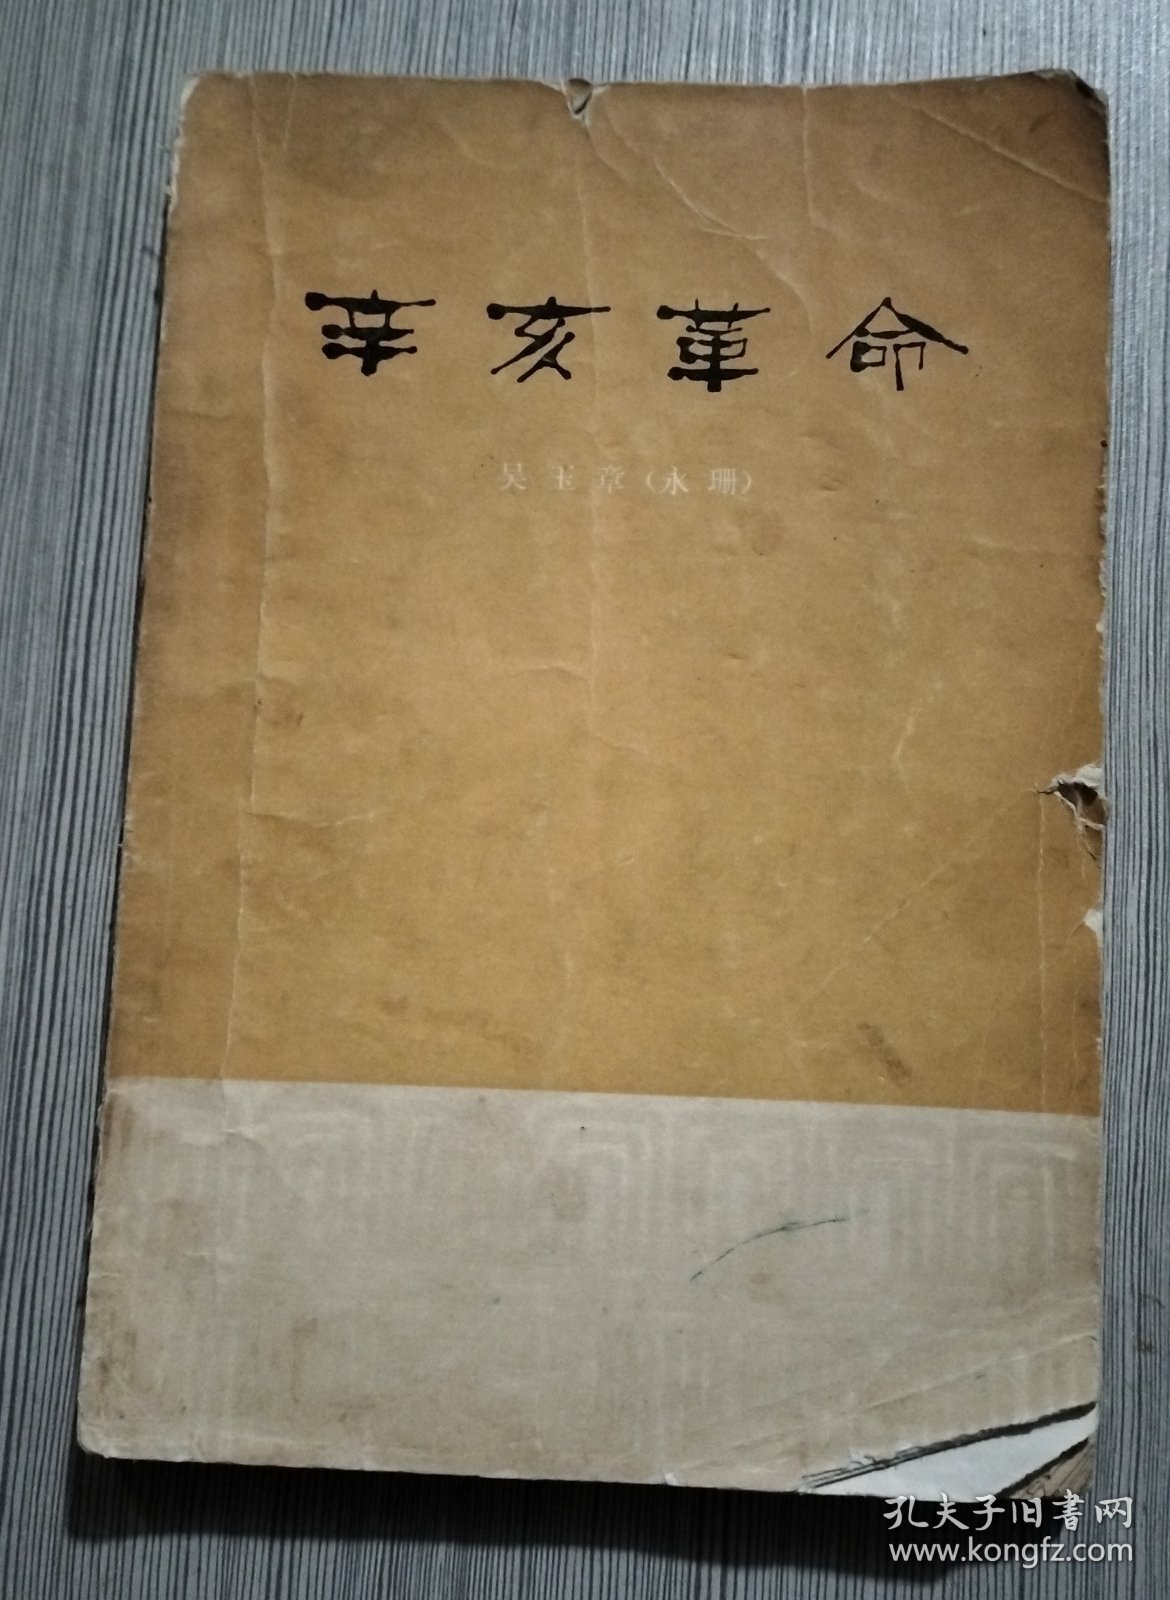 辛亥革命
吴玉章(永珊)
孔夫子旧書网
www.kongfz.com